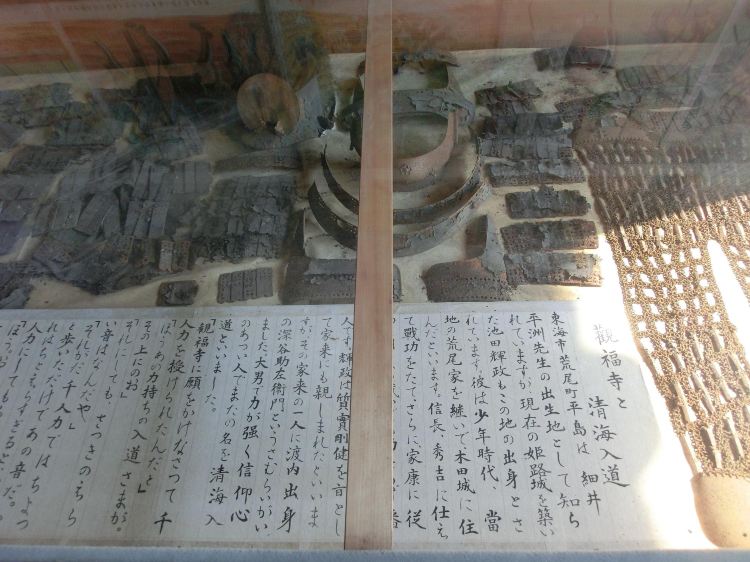 觀福寺と
清海入道
東海市荒尾町平島は 細井
平洲先生の出生地として知ら
れていますが現在の姫路城を築い
た池田輝政もこの地の出身とさ
れています。彼は少年時代、當
地の荒尾家を継いで木田城に住
んだといいます。信長、秀吉に仕え
て戰功をたて、さらに家康に従
人です。輝政は質實剛健を旨とし
て家来にも親しまれたといいま
すが、その家来の人に渡内出身
の深谷助左衛門というさむらいがい
ました。大男で力が強く信仰心
のあつい人でまたの名を清海入
道といいました。
「観福寺に願をかけなさつて 千
人力を授けられたんだと」
「ほうあの力持ちの入道さまが。
その上だのお」
「それにしても、さつきのぢら
い音はなんだや」
「それだが、千人力ではちよつ
と歩いただけであの音だ。